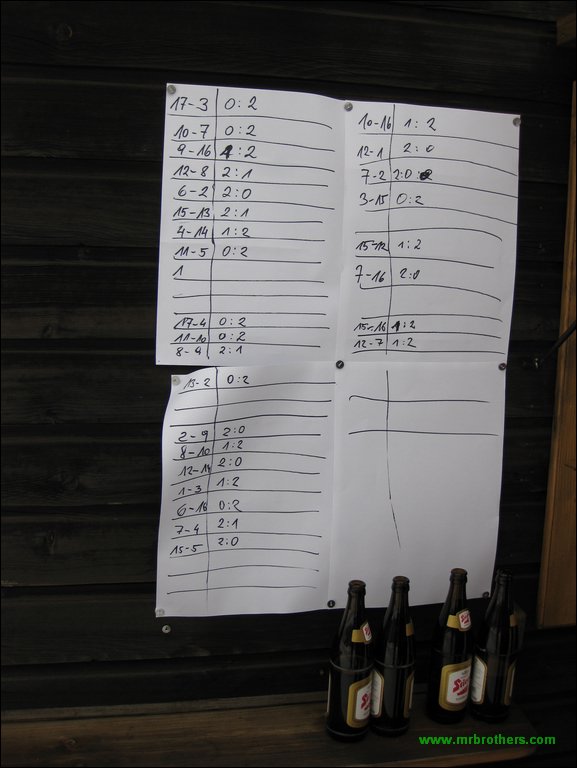 17-3 0:2
10-7 0:2
9-16 1:2
12-8 2:1
6-2 2:0
15-13 2:1
4-14 1:2
11-5 0:2
1
17-4 0:2
11-10 0:2
8-9 2:1
10-16 1:2
12-1 2:0
7-2 2:0
3-15 0:2
15-12 1:2
7-16 2:0
15-16 1:2
12-7 1:2
13-2 0:2
2-9 2:0
8-10 1:2
12-14 2:0
1-3 1:2
6-16 0:2
7-4 2:1
15-5 2:0
www.mrbrothers.com